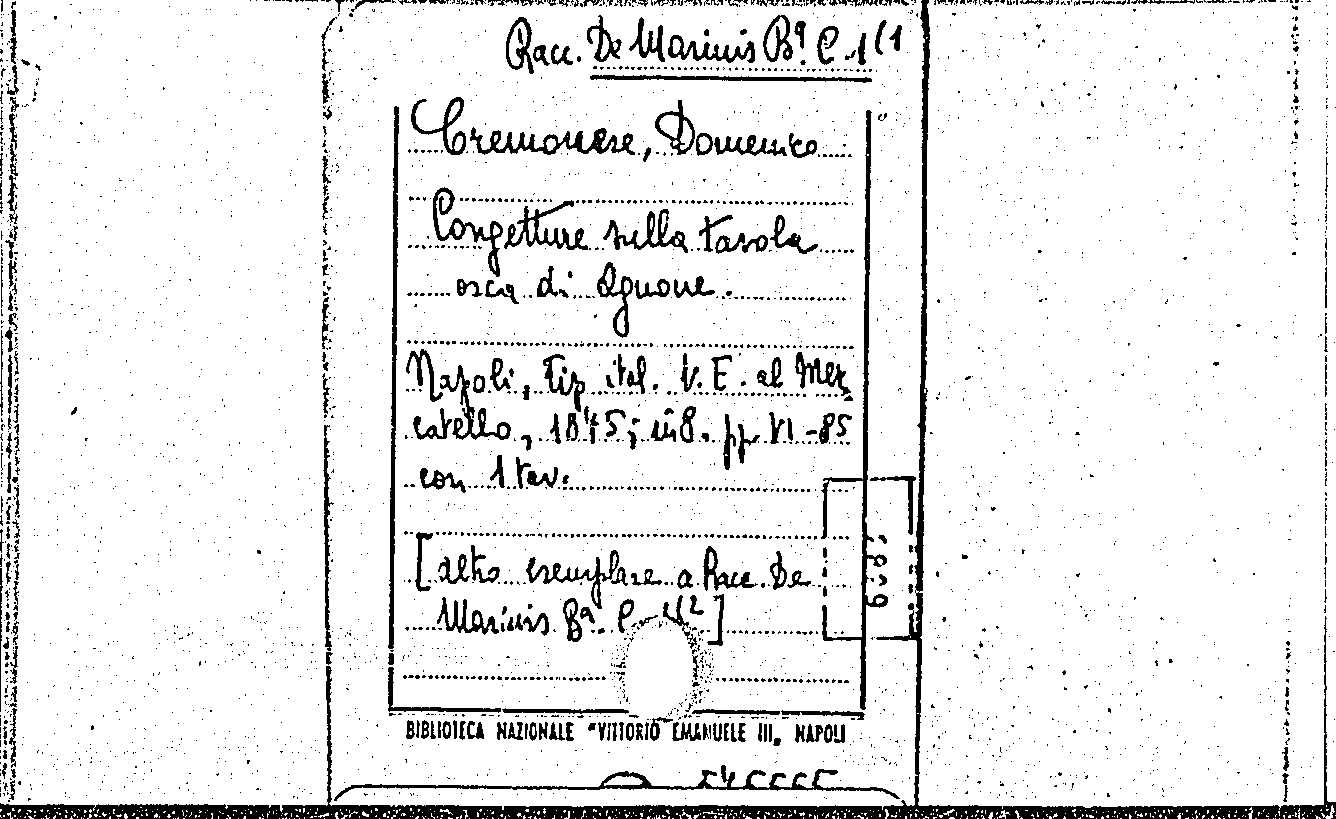 Racc. De Marinis Bª. C. 1(1
Cremonese, Domenico
Congetture sulla tavola
osca di Agnone.
Napoli, Tip. ital. V. E. al Mer
catello, 1875; in 8. pp. VI-85
con 1 tav.
[altro esemplare a Racc. De
Marinis Bª. C. 1(2]
BIBLIOTECA NAZIONALE "VITTORIO EMANUELE III„ NAPOLI